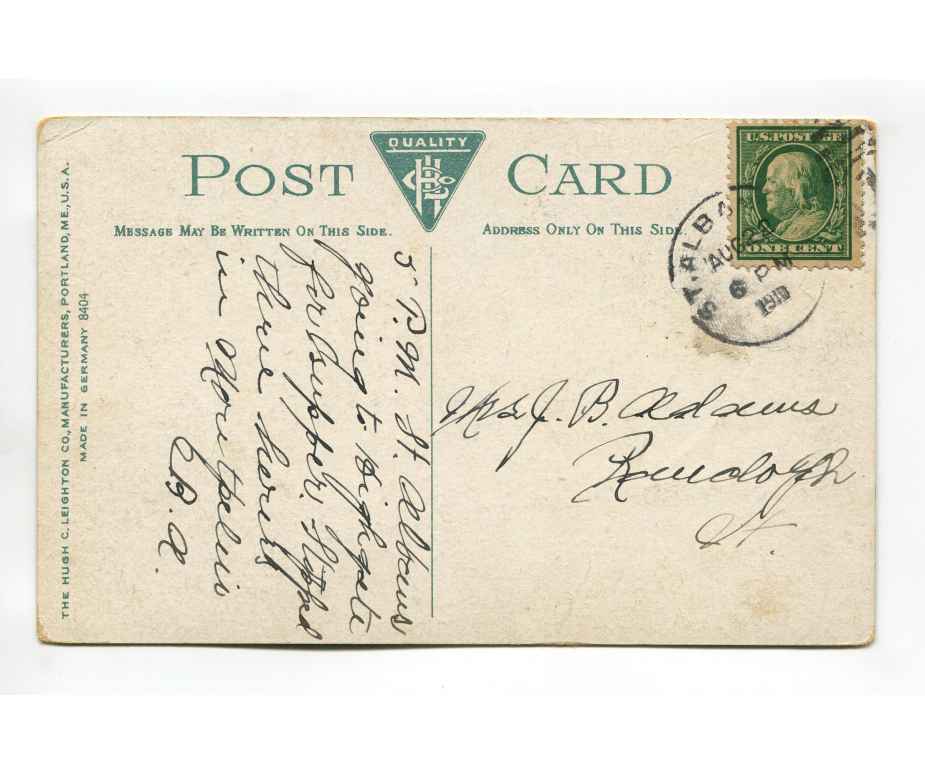 POST CARD
QUALITY
MESSAGE MAY BE WRITTEN ON THIS SIDE.
ADDRESS ONLY ON THIS SIDE.
THE HUGH C. LEIGHTON CO., MANUFACTURERS, PORTLAND, ME., U.S.A.
MADE IN GERMANY 8404
5 P.M. St. Albans
going to Highgate
for supper. Stopped
three hours
in Montpelier
U.S. POSTAGE
ONE CENT
ST. ALBA
AUG
6 PM
1910
Mrs J. B. Adams
Randolph
Vt.